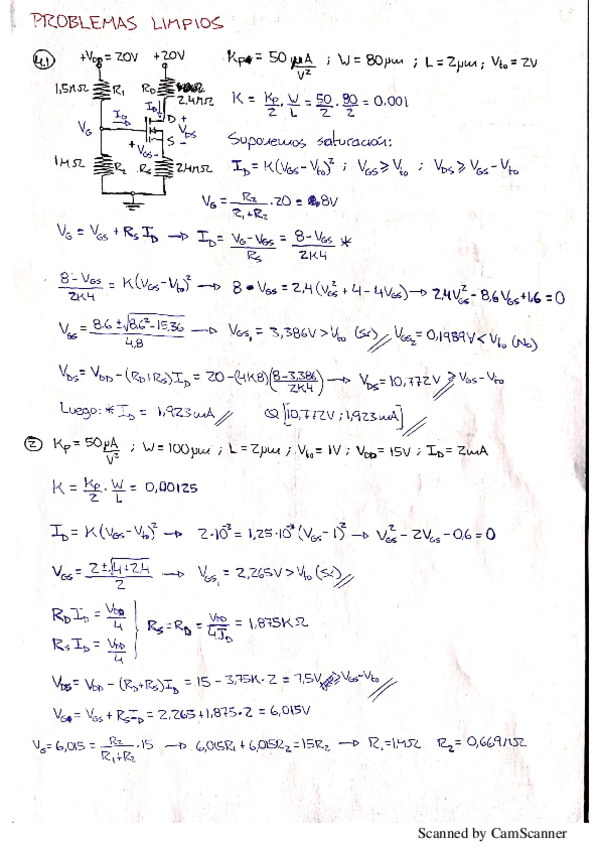 PROBLEMAS LIMPIOS
4.1 +V_DD = 20V +20V Kp = 50 μA/V² ; W = 80μm ; L = 2μm ; Vto = 2V
1,5MΩ R1 RD 2.4KΩ K = Kp/2 · W/L = 50/2 · 80/2 = 0.001
IG ID D + VDS
VG + VGS - S - Suponemos saturación:
1MΩ R2 RS 2.4KΩ ID = K(VGS - Vto)² ; VGS ≥ Vto ; VDS ≥ VGS - Vto
VG = R2/(R1+R2) · 20 = 8V
VG = VGS + RS ID → ID = (VG - VGS)/RS = (8 - VGS)/2K4 *
(8 - VGS)/2K4 = K(VGS - Vto)² → 8 - VGS = 2,4(VGS² + 4 - 4VGS) → 2,4VGS² - 8,6VGS + 1.6 = 0
VGS = (8.6 ± √(8,6² - 15,36))/4,8 → VGS1 = 3,386V > Vto (Sí) VGS2 = 0,1989V < Vto (No)
VDS = VDD - (RD+RS)ID = 20 - (4K8)((8 - 3,386)/2K4) → VDS = 10,772V ≥ VGS - Vto
Luego: * ID = 1,923mA Q [10,772V ; 1,923mA]
2 Kp = 50 μA/V² ; W = 100μm ; L = 2μm ; Vto = 1V ; VDD = 15V ; ID = 2mA
K = Kp/2 · W/L = 0,00125
ID = K(VGS - Vto)² → 2·10⁻³ = 1,25·10⁻³ (VGS - 1)² → VGS² - 2VGS - 0.6 = 0
VGS = (2 ± √(4 + 2,4))/2 → VGS1 = 2,265V > Vto (Sí)
RD ID = VDD/4
RS ID = VDD/4
RS = RD = VDD/4ID = 1,875KΩ
VDS = VDD - (RD+RS)ID = 15 - 3,75K · 2 = 7,5V ≥ VGS - Vto
VG = VGS + RS ID = 2.265 + 1,875 · 2 = 6,015V
VG = 6,015 = R2/(R1+R2) · 15 → 6,015R1 + 6,015R2 = 15R2 → R1 = 1MΩ R2 = 0,669MΩ
Scanned by CamScanner